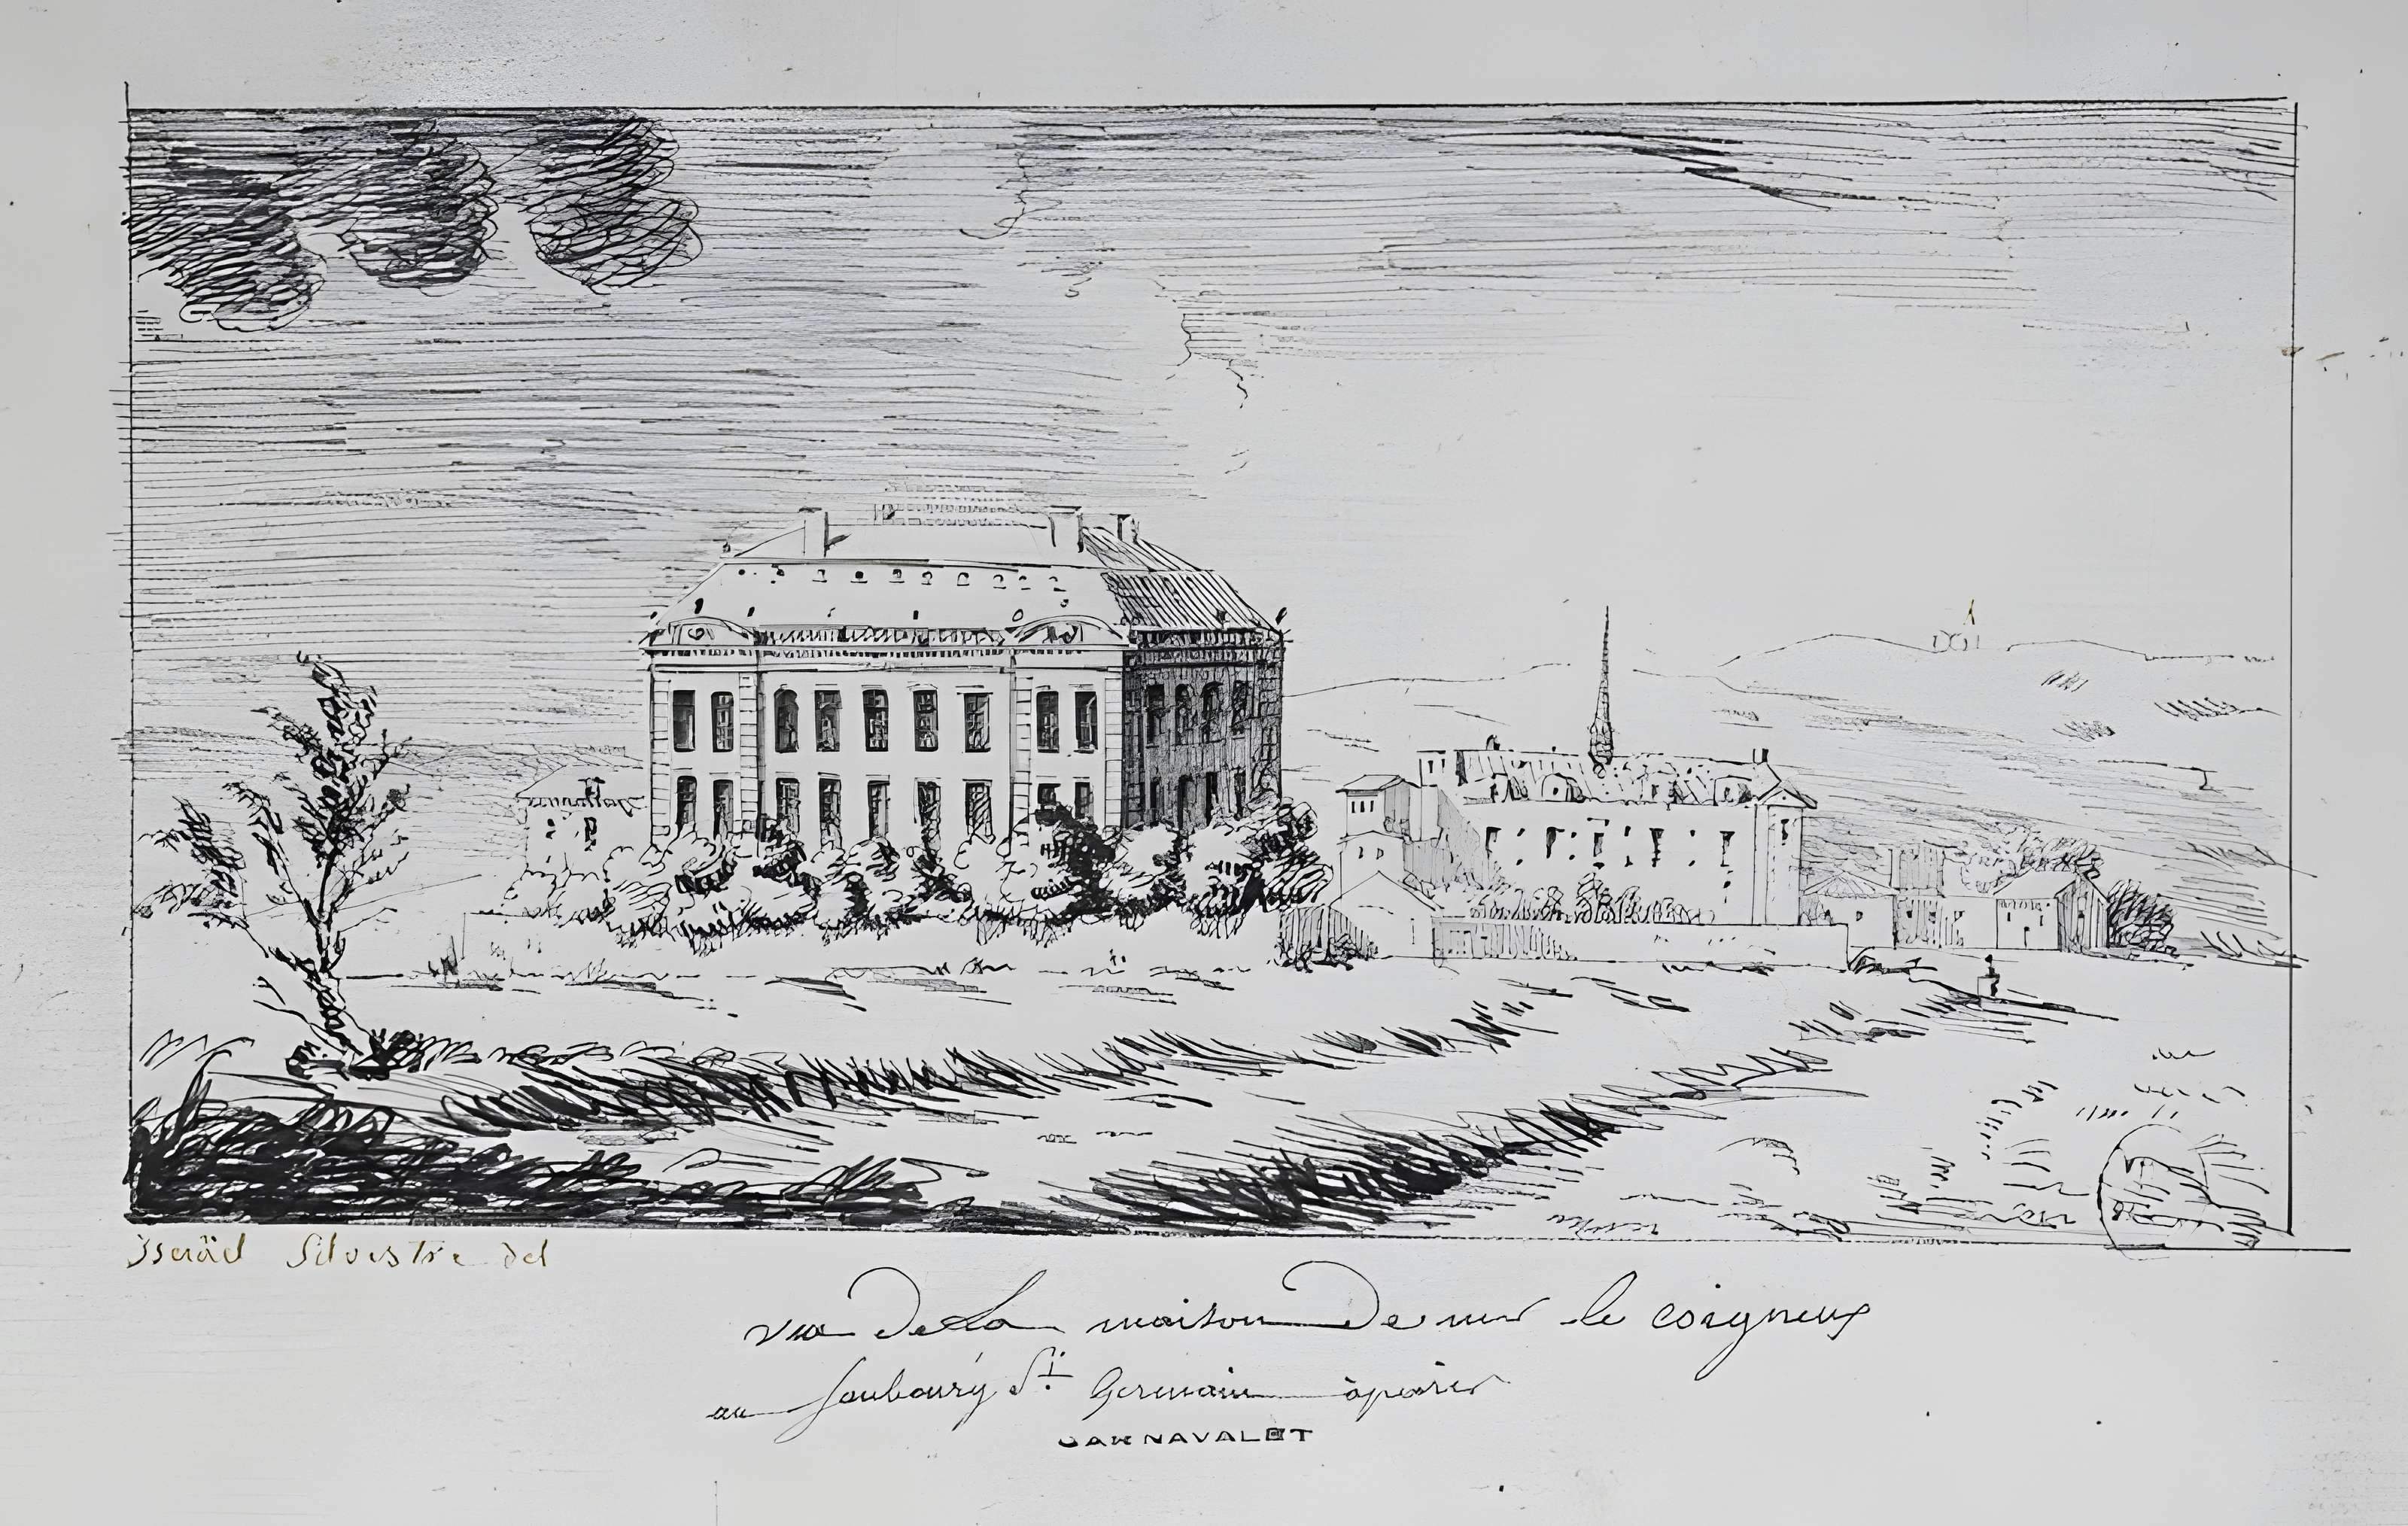 Israël Silvestre del
vue De La maison De mr le coigneux
au faubourg St. Germain à paris
CARNAVALET